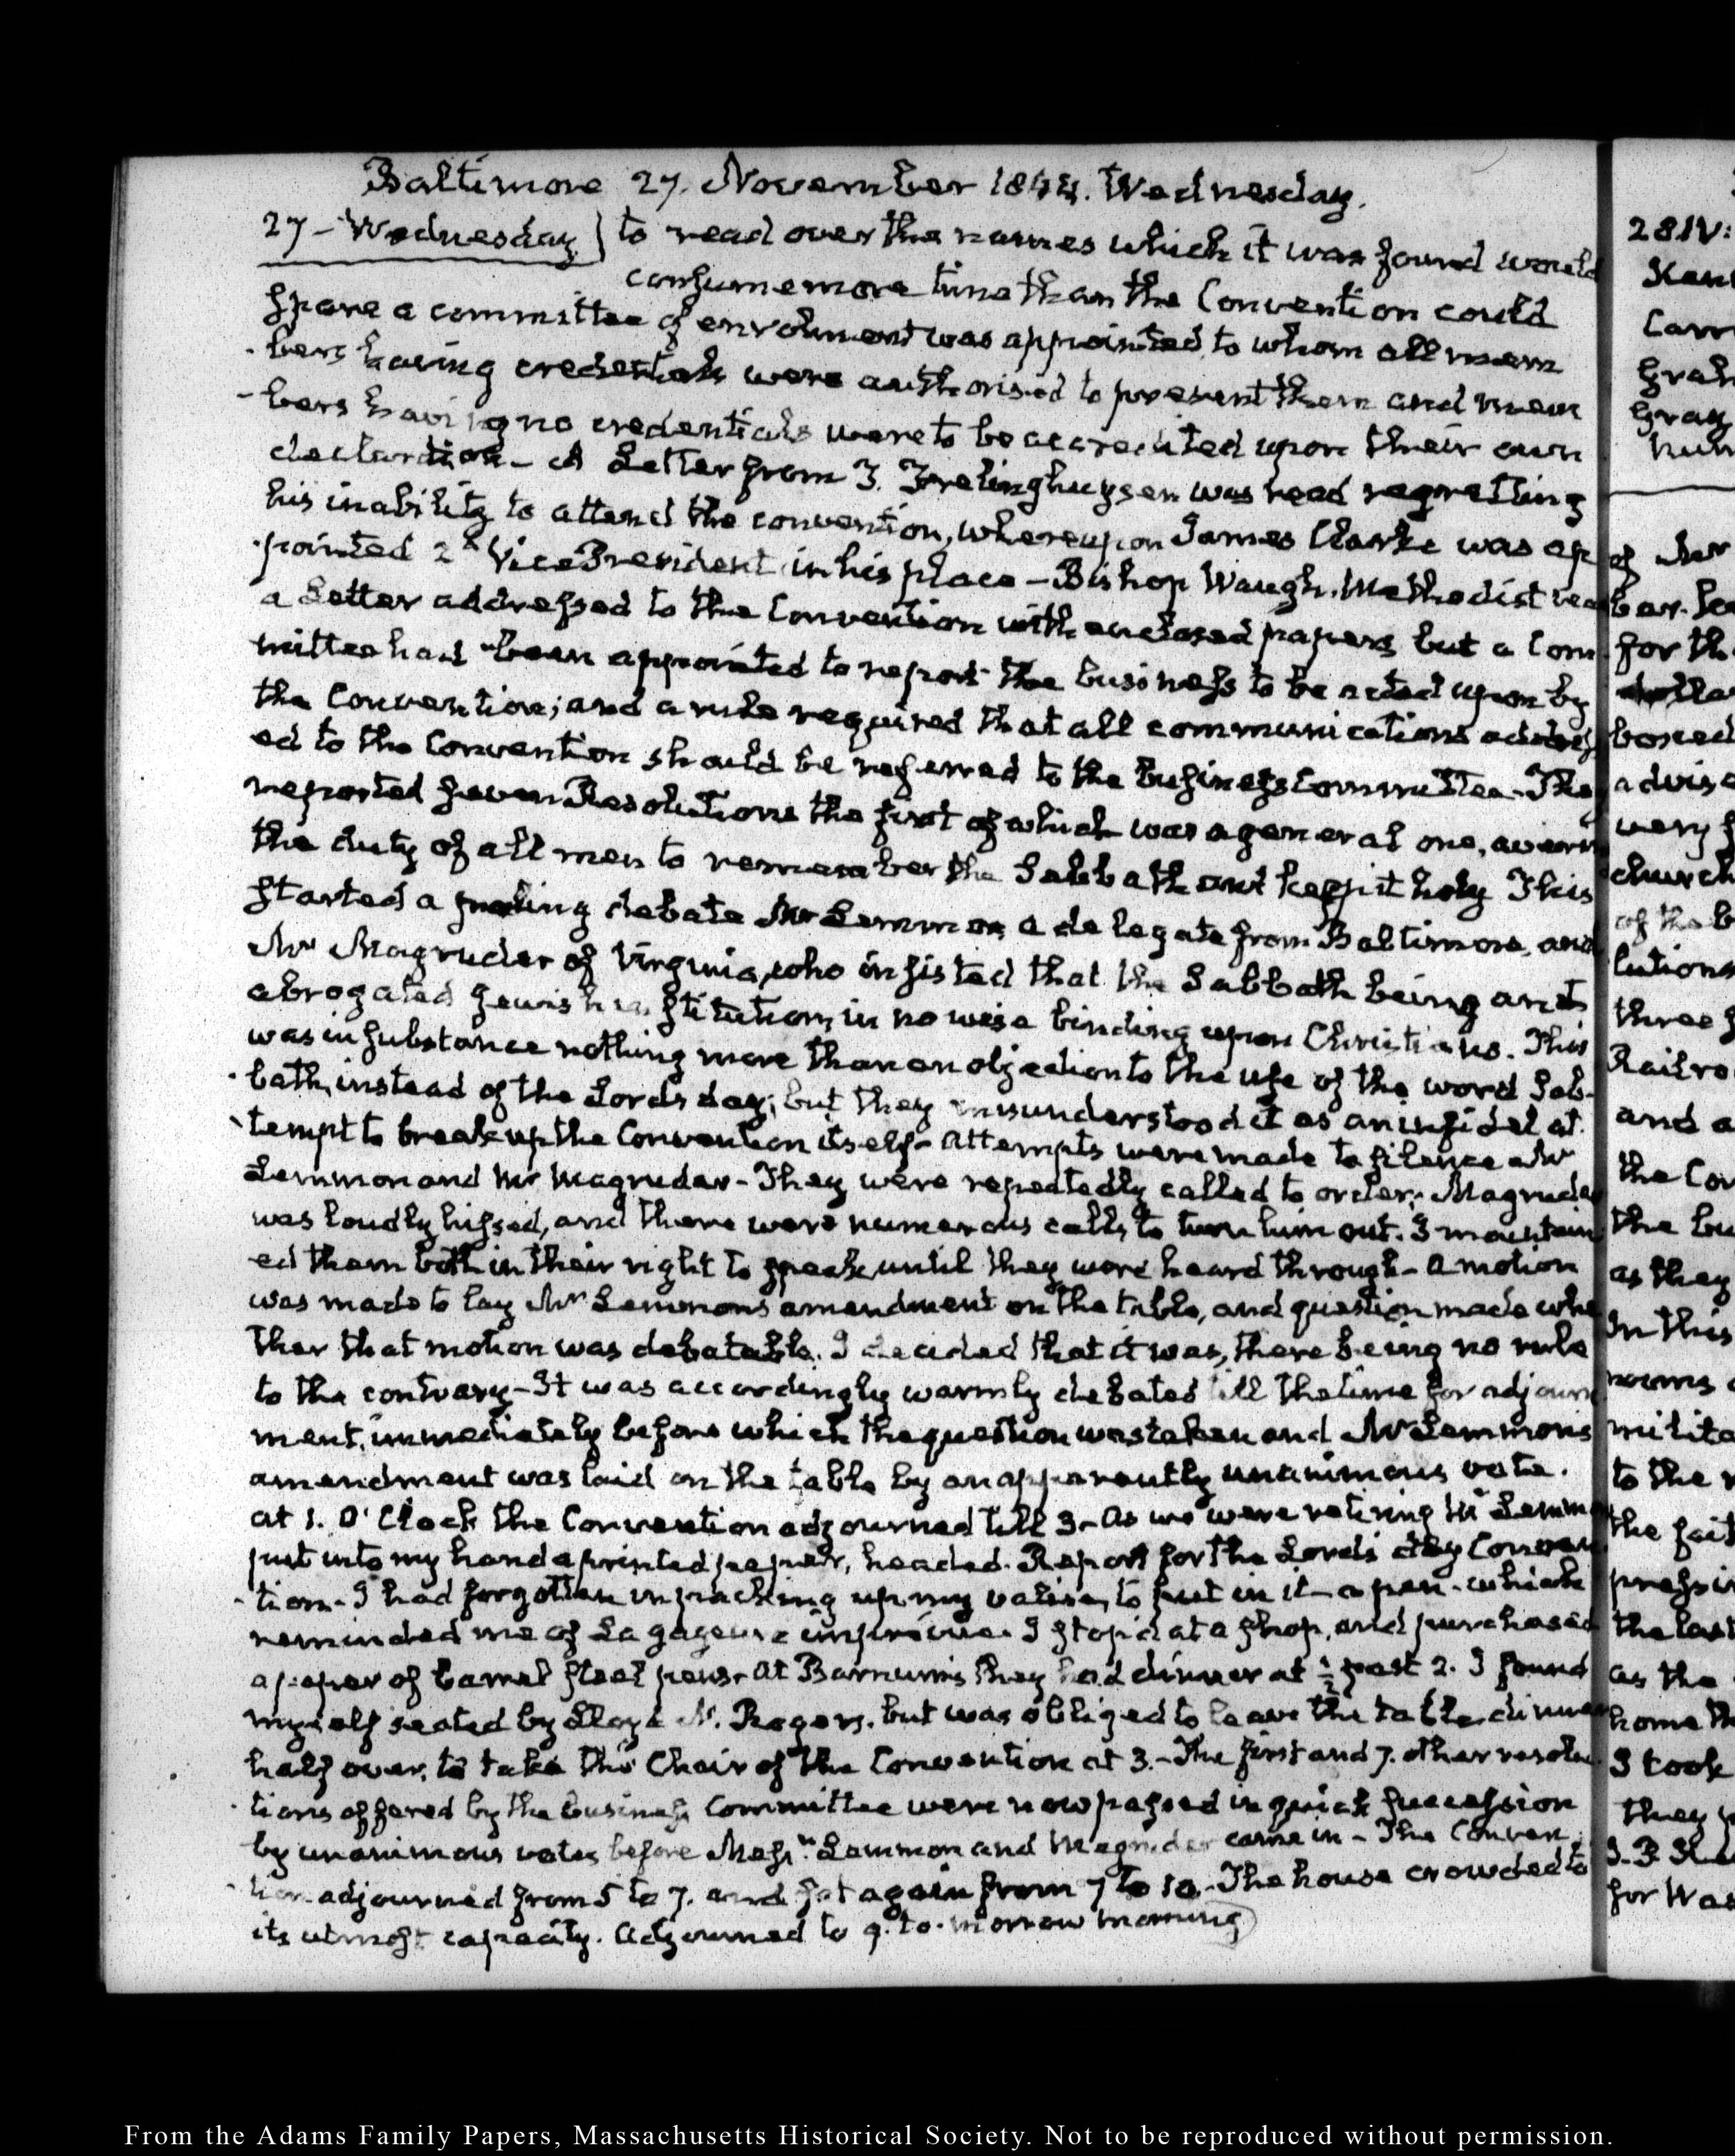 Baltimore 27. November 1844. Wednesday.
27 – Wednesday) to read over the names which it was found would
consume more time than the Convention could
spare a committee of enrolment was appointed, to whom all mem
-bers having credentials were authorised to present them and mem
-bers having no credentials were to be accredited upon their own
declaration – A Letter from T. Frelinghuysen was read regretting
his inability to attend the convention, whereupon James Clarke was ap
-pointed 2d Vice President in his place – Bishop Waugh, Methodist
a Letter addressed to the Convention with enclosed papers but a Com
mittee had been appointed to report the business to be acted upon by
the Convention; and a rule required that all communications address
ed to the Convention should be referred to the business Committee – They
reported seven Resolutions the first of which was a general one,
the duty of all men to remember the Sabbath and keep it holy This
started a debate Mr Lemmon a delegate from Baltimore, and
Mr Magruder of Virginia, who insisted that the Sabbath being
abrogated Jewish institution, in no wise binding upon Christians. This
was in substance nothing more than an objection to the use of the word Sab-
-bath, instead of the Lord's day; but they misunderstood it as an infidel at
-tempt to break up the Convention itself – Attempts were made to silence Mr
Lemmon and Mr Magruder – They were repeatedly called to order; Magruder
was loudly hissed, and there were numerous calls, to turn him out. I maintain
ed them both in their right to speak until they were heard through – A motion
was made to lay Mr Lemmon's amendment on the table, and question made whe
ther that motion was debatable. I decided that it was, there being no rule
to the contrary – It was accordingly warmly debated till the time for adjourn
ment, immediately before which the question was taken and Mr Lemmon's
amendment was laid on the table by an apparently unanimous vote.
at 1. O'Clock the Convention adjourned till 3 – As we were retiring Mr Lemmon
put into my hand a printed paper, headed. Report for the Lord's day Conven
-tion – I had forgotten in packing up my valise, to put in it – a pen – which
reminded me of La gageure imprévue. I stop'd at a shop, and purchased
a paper of barrel steel pens – At Barnum's they had dinner at ½ past 2. I found
myself seated by Lloyd N. Rogers, but was obliged to leave the table, dinner
half over, to take the Chair of the Convention at 3. – The first and 7. other resolu
-tions offered by the business Committee were now passed in quick succession
by unanimous votes before Messrs. Lemmon and Magruder came in – The Conven
-tion adjourned from 5 to 7. and sat again from 7 to 10 – The house crowded to
its utmost capacity. Adjourned to 9. to-morrow morning
From the Adams Family Papers, Massachusetts Historical Society. Not to be reproduced without permission.